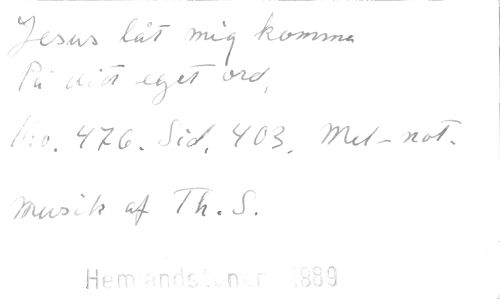 Jesus låt mig komma
På ditt eget ord,
No. 476. Sid. 403. Mel-not.
Musik af Th. S.
Hemlandstoner 1889